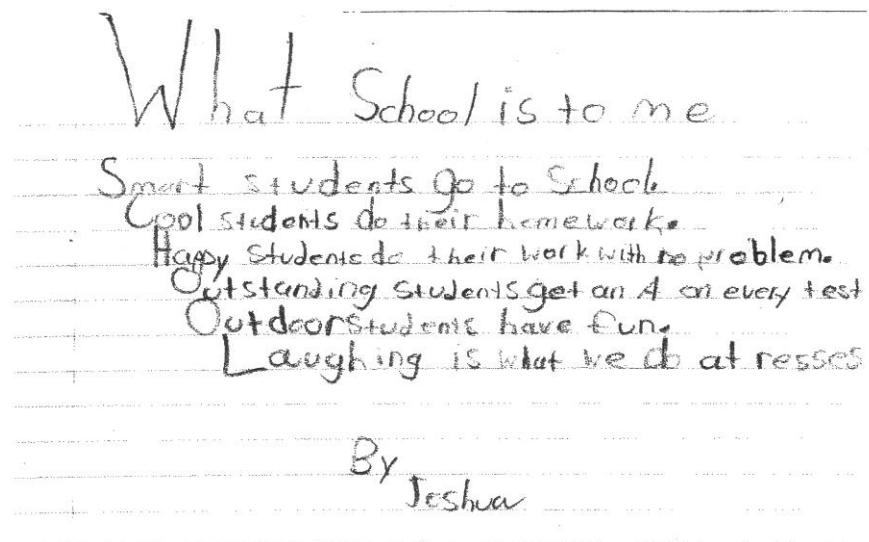 What School is to me
Smart students go to School.
Cool students do their homework.
Happy Students do their work with no problem.
Outstanding students get an A on every test
Outdoor students have fun.
Laughing is what we do at resses
By
Joshua